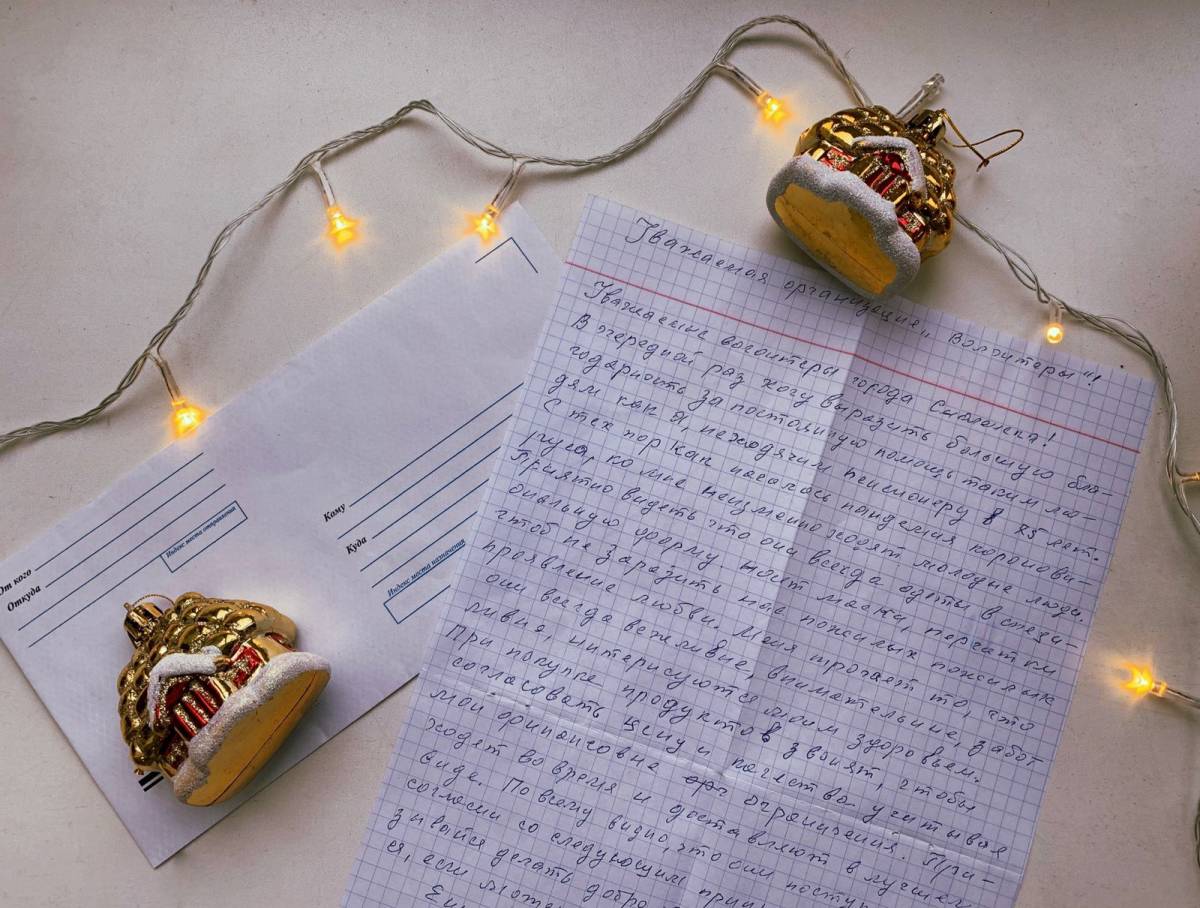 Уважаемая организация „Волонтеры"!
Уважаемые волонтеры города Смоленска!
В очередной раз хочу выразить большую бла-
годарность за постоянную помощь таким лю-
дям как я, неходячий пенсионеру в 85 лет.
С тех пор как началась пандемия коронови-
руса, ко мне неизменно ходят молодые люди.
Приятно видеть что они всегда одеты в специ-
альную форму, носят маски, перчатки
чтоб не заразить нас пожилых
проявление любви. Меня трогает то, что
они всегда вежливые, внимательные, забот
ливые, интересуются моим здоровьем.
При покупке продуктов звонят, чтобы
согласовать цену и качество учитывая
мои финансовые ограничения. При-
ходят во время и доставляют в лучшем
виде. По всему видно, что они поступ
согласно со следующим прин
зывайся делать добро
ся, если может
От кого
Откуда
Индекс места отправления
Кому
Куда
Индекс места назначения